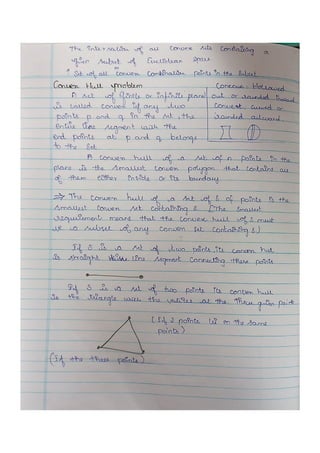 The intersection of all convex sets containing a
given subset of Euclidean space
* Set of all convex combination points in the subset
Convex Hull problem
Concave: hollowed
A set of finite or infinite plane
out or rounded inward
is called convex if any two
Convex: curved or
points p and q in the set, the
rounded outward.
entire line segment with the
end points at p and q belongs
to the set.
A convex hull of a set of n points in the
plane is the smallest convex polygon that contains all
of them either inside or its boundary.
=> The convex hull of a set of S of points is the
smallest convex set containing S (The smallest
requirement means that the convex hull of S must
be a subset of any convex set containing S)
If S is a set of two points, its convex hull
is straight line segment connecting these points
If S is a set of two points its convex hull
is the triangle with the vertices at the three given points
(If 3 points lie on the same
points)
(If the three points)